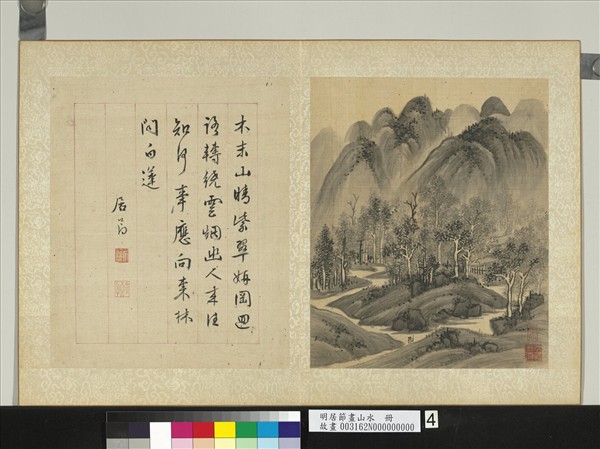 木末山晴紫翠
岡迴
路轉繞雲烟幽人來往
知何事應向東林
問白蓮
居節
明居節畫山水　冊
故畫003162N000000000
4